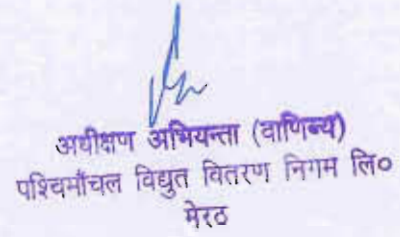 अधीक्षण अभियन्ता (वाणिज्य)
पश्चिमाँचल विद्युत वितरण निगम लि०
मेरठ